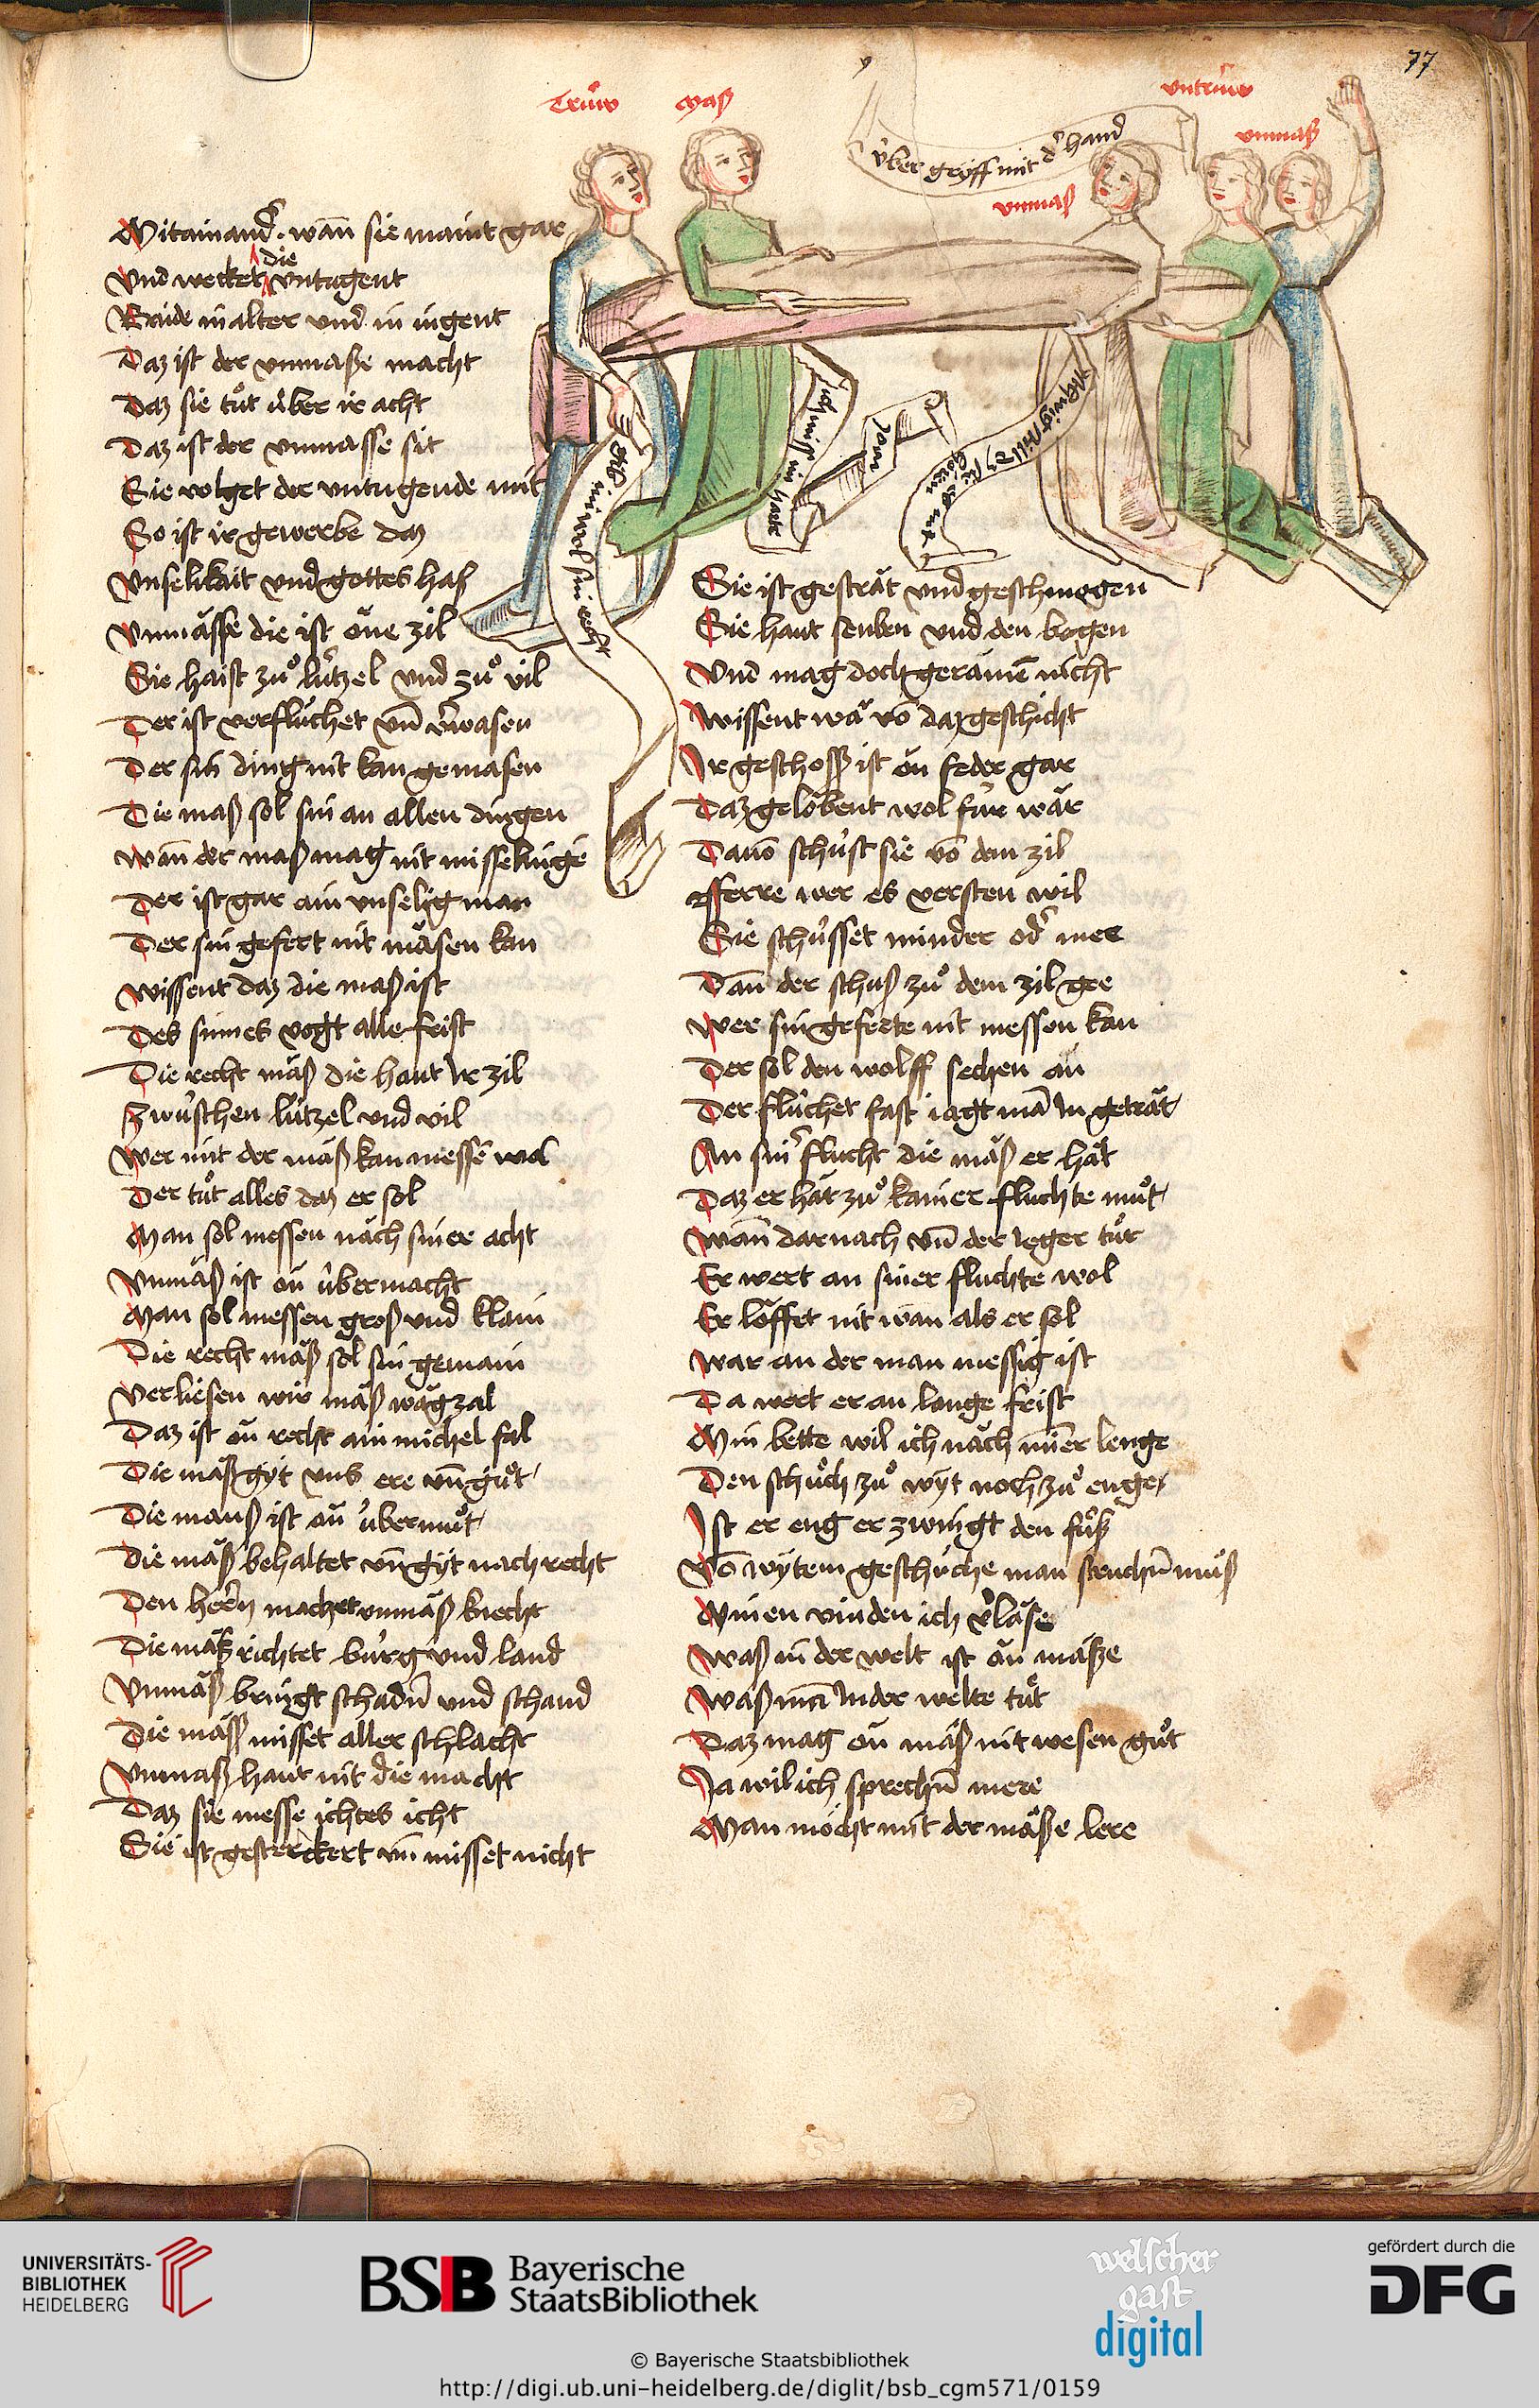 77
Trüw
Maß
vntrüw
vnmaß
vnmaß
v̾ber gryff mit d̾ hand
Mitainand̾. wan̄ sie maint gar
Vnd wecket die vntugent
Baide in alter vnd in iugent
Daz ist der vnmasze macht
Daz sie tuͦt über ir acht
Daz ist der vnmasse sit
Sie volget der vntugende mit
So ist ir gewerbe daz
Vnselikait vnd gottes haß
Vnmässe die ist öne zil
Sie haist zuͦ lützel vnd zuͦ vil
Der ist verflüchet vn̄ v̾wasen
Der sin ding nit kan gemasen
Die maß sol sin an allen dingen
Wan̄ der maß mag nit misselinge
Der ist gar ain vnselig man
Der sin gefert nit mäsen kan
Wissent daz die maß ist
Des sinnes vogt alle frist
Die recht mäß die haut Ir zil
Zwüschen lützel vnd vil
Wer mit der mäß kan messē wol
Der tuͦt alles daz er sol
Man sol messen näch siner acht
Vnmäß ist ön übermacht
Man sol messen groß vnd klain
Die recht mäß sol sin gemain
Verliesen wir mäß wäg zal
Daz ist ön recht ain michel fal
Die mäß gyt vns ere vn̄ guͦt
Die mauß ist ön übermuͦt
Die mäß behaltet vn̄ gyt nach recht
Den herrn machet vnmäß knecht
Die mäß richtet bürg vnd land
Vnmäß bringt schadn̄ vnd schand
Die mäß misset aller schlacht
Vnmaß haut nit die macht
Daz sie messe ichtes icht
Sie ist gesterckert vn̄ misset nicht
ich miß in harte
Sie ist gesträt vnd geschmogen
Sie haut senben vnd den bogen
Vnd mag doch gerämē nicht
Wissent wä vō daz geschicht
Ir geschoss ist ön feder gar
Daz gelöbent wol für wär
Dauō schüst sie vō dem zil
Fferre wer es versten wil
Sie schüsset minder od̾ mee
Dan̄ der schuß zuͦ dem zil gee
Wer sin geferte nit messen kan
Der sol den wolff sechen an
Der flüchet fast iagt mā In geträt
An sin̾ flucht die mäß er hät
Daz er hät zuͦ kainer fluchte muͦt
Wan̄ darnach vn̄ der ieger tuͦt
Er wert an siner fluchte wol
Er löffet nit wan als er sol
War an der man messig ist
Da wert er an lange frist
Min bette wil ich näch miner lenge
Den schuͦch zuͦ wyt noch zuͦ enge
Ist er eng er zwingt den fuͦß
Vō wytem geschüche man struchn̄ muͦß
Minen vinden ich v̾läse
Waß in der welt ist ön mäße
Waß mā In der welte tuͦt
Daz mag ön mäß nit wesen guͦt
Ja wil ich sprechn̄ mere
Man möcht mit der mäße lere
UNIVERSITÄTS-
BIBLIOTHEK
HEIDELBERG
BSB Bayerische
StaatsBibliothek
welscher
gast
digital
gefördert durch die
DFG
© Bayerische Staatsbibliothek
http://digi.ub.uni-heidelberg.de/diglit/bsb_cgm571/0159